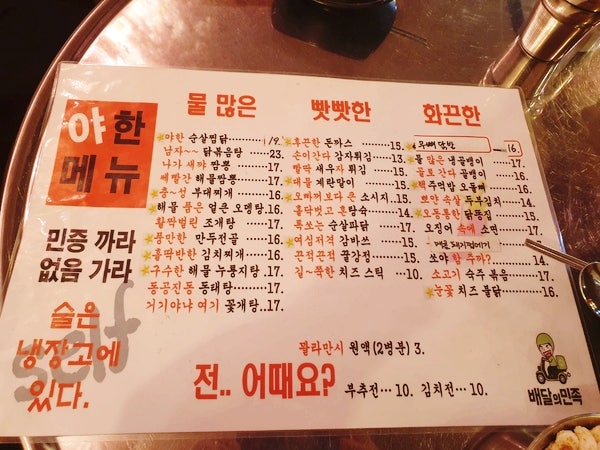 야한
메뉴
민증 까라
없음 가라
술은
냉장고에
있다.
self
물 많은
야한 순살찜닭 19.
남자~~ 닭볶음탕 ········ 23.
나가 새꺄 짬뽕 ········ 17.
쎄빨간 해물짬뽕 ······· 17.
충~성 부대찌개 ········ 16.
해물 품은 얼큰 오뎅탕 .. 16.
활딱벌린 조개탕 ········ 17.
풍만한 만두전골 ········ 16.
홀딱반한 김치찌개 ······ 16.
구수한 해물 누룽지탕 ·· 17.
동공진동 동태탕 ········ 17.
거기야나 여기 꽃게탕 .. 17.
빳빳한
후끈한 돈까스 ········ 15.
손이간다 감자튀김 ····· 13.
빨딱 새우자 튀김 ······ 15.
때물 계란말이 ········ 15.
오빠꺼보다 큰 소시지 .. 15.
홀딱벗고 혼탕숙 ······ 14.
톡쏘는 순살파닭 ······· 17.
여심저격 감바쓰 ······· 15.
끈적끈적 꿀강정 ······· 15.
길~쭉한 치즈 스틱 ··· 10.
화끈한
무뼈 닭발 16
물 많은 냉골뱅이 ······ 17.
골로 간다 골뱅이 ······ 17.
맥주먹밥 오돌뼈 ······· 16.
뽀얀 속살 두부김치 ···· 14.
오동통한 닭똥집 ······· 15.
오징어 속에 소면 ······ 17.
매콤 돼지껍데기 15.
쏘야 할 주까? ········ 14.
소고기 숙주 볶음 ······ 17.
눈꽃 치즈 불닭 ······· 16.
꽐라만시 원액(2병분) 3.
전.. 어때요? 부추전··· 10. 김치전··· 10.
배달의민족